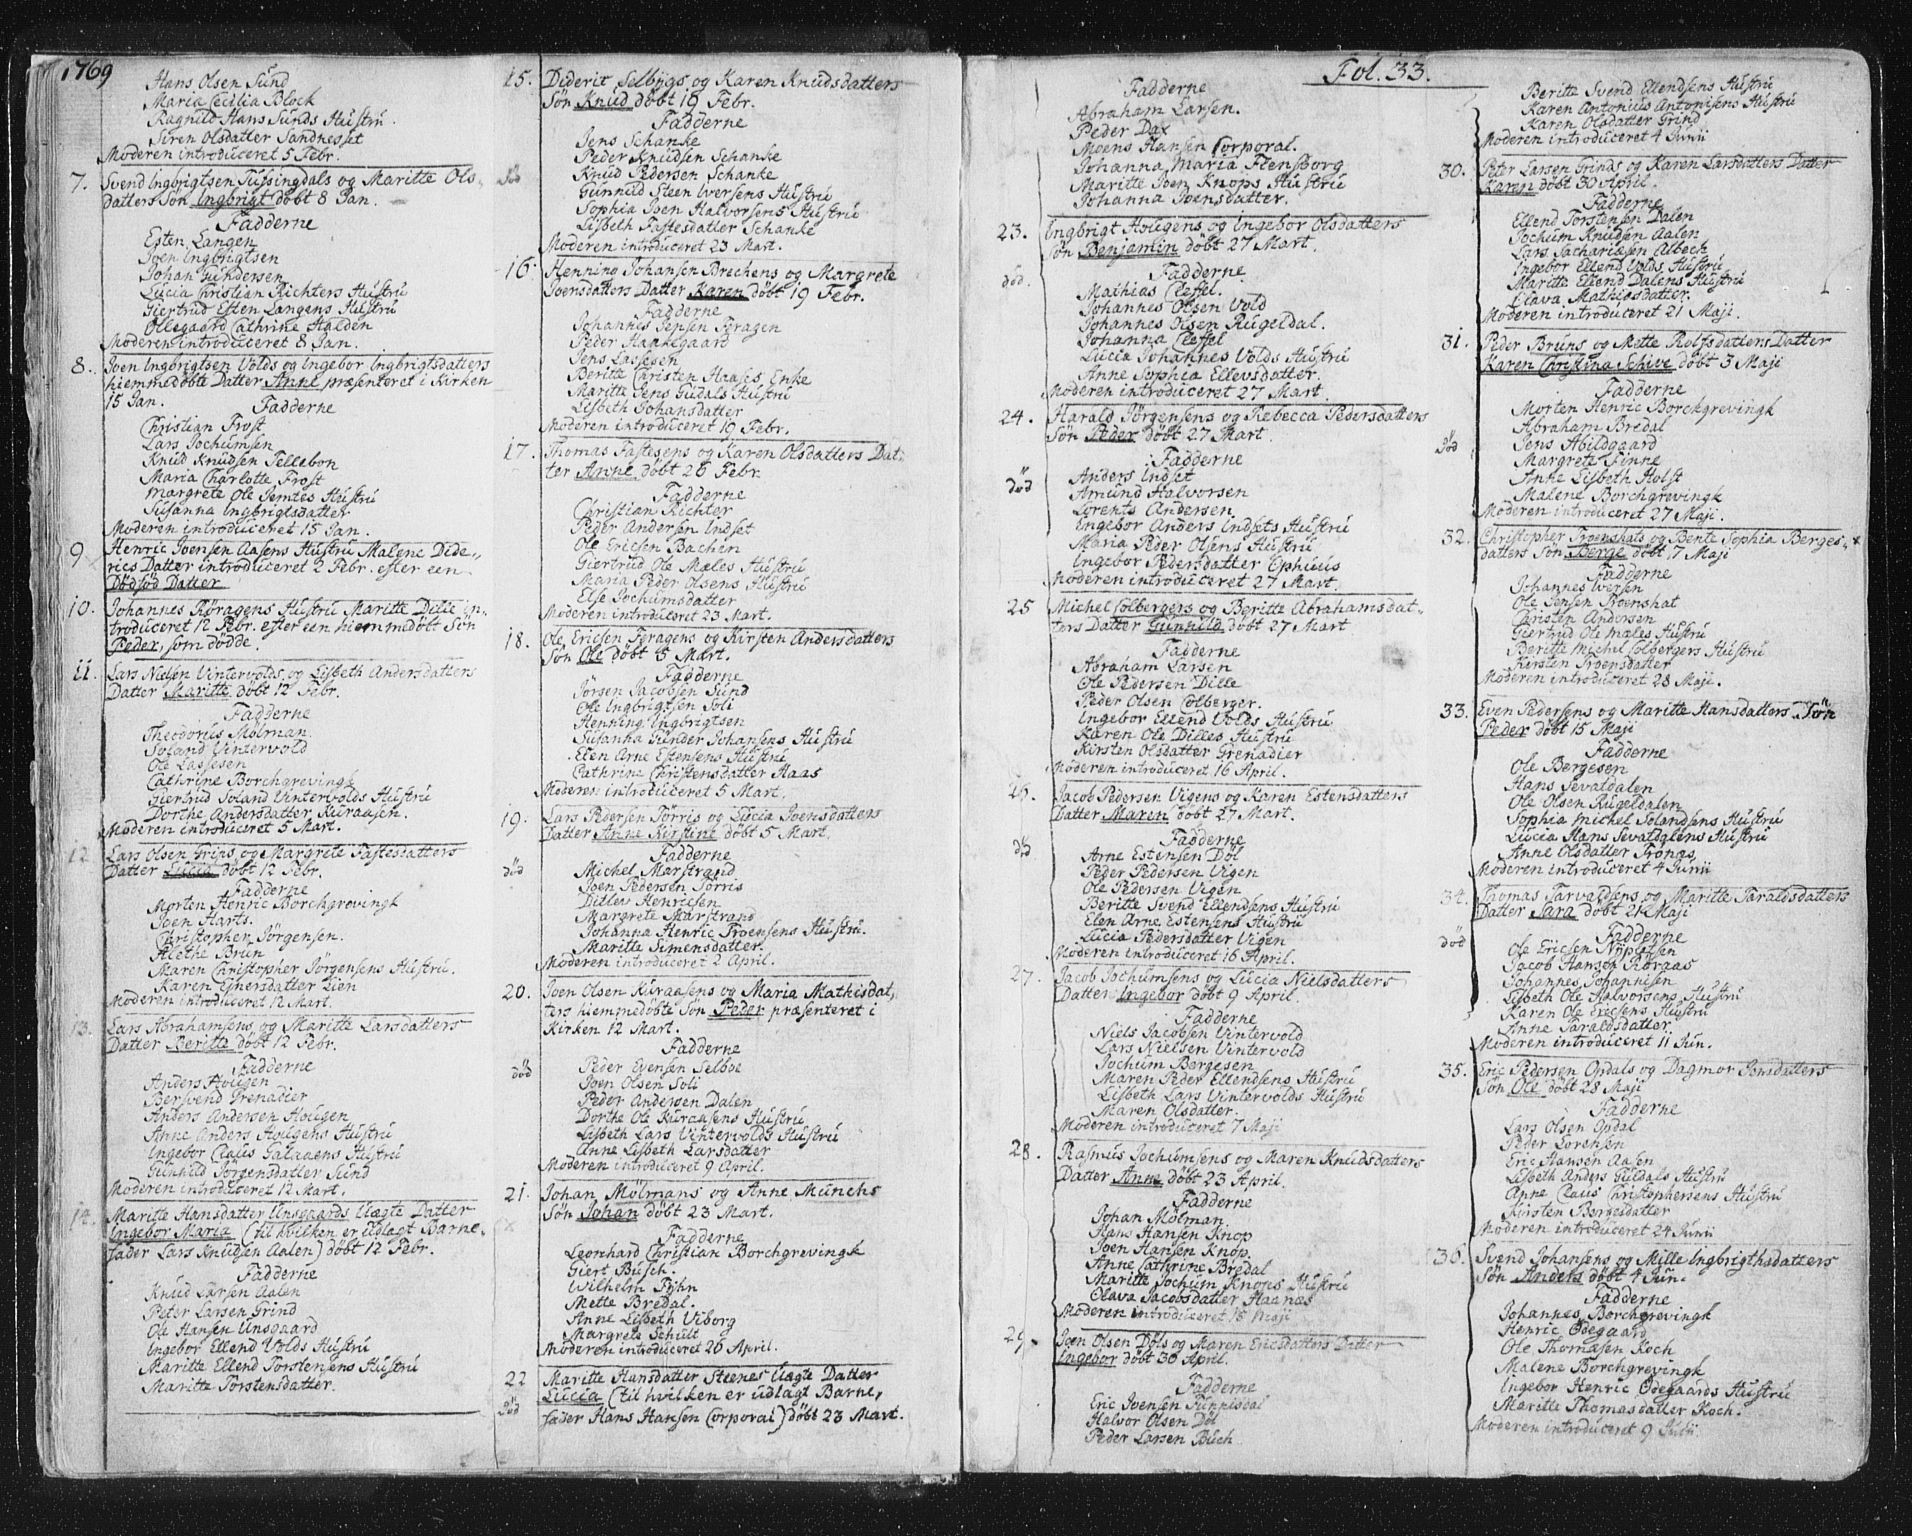 1769
Hans Olsen Sund
Maria Cecilia Block
Ragnild Hans Sunds Hustrú
Siren Olsdatter Sandnesset
Moderen introdúceret 5 Febr.
7. Svend Ingbrigtsen Tufsingdals og Maritte Ols-
datters Søn Ingbrigt døbt 8 Jan.
Fadderne
Esten Langen
Joen Ingbrigtsen
Johan Gundersen
Lúcia Christian Richters Hústrú
Giertrud Esten Langens Hústrú
Ollegaard Cathrine Halden
Moderen introdúceret 8 Jan.
8. Joen Ingbrigtsen Volds og Ingebor Ingbrigtsdatters
hiemmedøbte Datter Anne præsenteret i Kirken
15 Jan.
Fadderne
Christian Frost
Lars Jochumsen
Knúd Knúdsen Tellebon
Maria Charlotte Frost
Margrete Ole Jemtes Hústrú
Súsanna Ingbrigtsdatter
Moderen introdúceret 15 Jan.
9. Henric Joensen Aasens Hústrú Malene Dide-
rics Datter introdúceret 2 Febr. efter een
Dødfød Datter
10. Johannes Røragens Hústrú Maritte Dille in-
trodúceret 12 Febr. efter een hiemmedøbt Søn
Peder, som dødde.
11. Lars Nielsen Vintervolds og Lisbeth Andersdatters
Datter Maritte døbt 12 Febr.
Fadderne
Theodorús Mølman
Joland Vintervold
Ole Lassesen
Cathrine Borchgrevingk
Giertrúd Joland Vintervolds Hústrú
Dorthe Andersdatter Kúraasen.
Moderen introdúceret 5 Mart.
12 Lars Olsen Grips og Margrete Fastesdatters
Datter Lúcia døbt 12 Febr.
Fadderne
Morten Henric Borchgrevingk
Joen Harts.
Christopher Jørgensen.
Alethe Brún
Maren Christopher Jørgensens Hústrú.
Karen Einersdatter Lien
Moderen introdúceret 12 Mart.
13. Lars Abrahamsens og Maritte Larsdatters
Datter Beritte døbt 12 Febr.
Fadderne
Anders Hougen
Bersvend Grenadier
Anders Andersen Hougen
Anne Anders Hougens Hústrú
Ingebor Claús Galaaens Hústrú
Gúnnild Jørgensdatter Súnd
Moderen introdúceret 12 Mart.
14. Maritte Hansdatter Unsgaards Uægte Datter
Ingebor Maria (til hvilken er udlagt Barne-
fader Lars Knúdsen Aalen) døbt 12 Febr.
Fadderne
Knúd Larsen Aalen
Peter Larsen Grind
Ole Hansen Unsgaard
Ingebor Ellend Volds Hústrú
Maritte Ellend Torstensens Hústrú
Maritte Torstensdatter.
15. Diderit Selbygs og Karen Knúdsdatters
Søn Knúd døbt 19 Febr.
Fadderne
død
Jens Schanke
Peder Knúdsen Schanke
Knúd Pedersen Schanke
Gúnnild Steen Iversens Hústrú
Sophia Joen Halvorsens Hústrú
Lisbeth Fastesdatter Schanke
Moderen introdúceret 23 Mart.
16. Henning Johansen Brechens og Margrete
Joensdatters Datter Karen døbt 19 Febr.
Fadderne
Johannes Jepsen Feragen
Peder Haakegaard
Jens Lassesen
Beritte Christen Haases Enke
Maritte Jens Gúdals Hústrú
Lisbeth Johansdatter
Moderen introdúceret 19 Febr.
17. Thomas Fastesens og Karen Olsdatters Dat-
ter Anne døbt 26 Febr.
Fadderne
Christian Richter
Peder Andersen Indset
Ole Ericsen Bachen
Giertrúd Ole Mæles Hústrú
Maria Peder Olsens Hústrú
Else Jochúmsdatter
Moderen introdúceret 23 Mart.
18. Ole Ericsen Feragens og Kirsten Andersdatters
Søn Ole døbt 5 Mart.
Fadderne
Jørgen Jacobsen Súnd
Ole Ingbrigtsen Soli
Henning Ingbrigtsen
Súsanna Gúnder Johansens Hústrú
Elen Arne Estensens Hústrú
Cathrine Christensdatter Haas
Moderen introdúceret 5 Mart.
19. Lars Pedersen Tørris og Lúcia Joensdatters
Datter Anne Kirstine døbt 5 Mart.
Fadderne
død
Michel Marstrand
Joen Pedersen Tørris
Ditlew Henricsen
Margrete Marstrand
Johanna Henric Troensens Hústrú.
Maritte Simensdatter.
Moderen introdúceret 2 April.
20. Joen Olsen Kúraasens og Maria Mathisdat-
ters hiemmedøbte Søn Peder præsenteret i
Kirken 12 Mart.
Fadderne
død
Peder Evensen Selboe
Joen Olsen Soli
Peder Andersen Dalen
Dorthe Ole Kúraasens Hústrú
Lisbeth Lars Vintervolds Hústrú
Anne Lisbeth Larsdatter
Moderen introdúceret 9 April.
21. Johan Mølmans og Anne Múnchs
Søn Johan døbt 23 Mart.
Fadderne
Leonhard Christian Borchgrevingk
Giert Búsch.
Wilhelm Fyhn
Mette Bredal.
Anne Lisbeth Viborg
Margrete Schúlt
Moderen introdúceret 26 April.
22 Maritte Hansdatter Steenes Uægte Datter
død
Lúcia (til hvilken er údlagt Barne-
fader Hans Hansen Corporal) døbt 23 Mart.
Fol. 33.
Fadderne
Abraham Larsen.
Peder Dax
Moens Hansen Corporal.
Johanna Maria Flensborg
Maritte Joen Knops Hústrú
Johanna Joensdatter.
23. Ingbrigt Hougens og Ingebor Olsdatters
Søn Benjamin døbt 27 Mart.
Fadderne
død.
Mathias Cleffel.
Johannes Olsen Vold
Johannes Olsen Rúgeldal.
Johanna Cleffel
Lúcia Johannes Volds Hústrú
Anne Sophia Ellevsdatter.
Moderen introdúceret 27 Mart.
24. Harald Jørgensens og Rebecca Pedersdatters
Søn Peder døbt 27 Mart.
Fadderne
død
Anders Indset
Amund Halvorsen
Lorents Andersen
Ingebor Anders Indsets Hústrú
Maria Peder Olsens Hústrú
Ingebor Pedersdatter Ephúús
Moderen introdúceret 27 Mart.
25 Michel Colbergers og Beritte Abrahamsdat-
ters Datter Gúnnild døbt 27 Mart
Fadderne
Abraham Larsen
Ole Pedersen Dille
Peder Olsen Colberger.
Ingebor Ellend Volds Hústrú
Karen Ole Dilles Hústrú
Kirsten Olsdatter Grenadier
Moderen introdúceret 16 April.
26. Jacob Pedersen Vigens og Karen Estensdatters
Datter Maren døbt 27 Mart.
Fadderne
død
Arne Estensen Døl
Peder Pedersen Vigen
Ole Pedersen Vigen
Beritte Svend Ellendsens Hústrú
Elen Arne Estensens Hústrú
Lúcia Pedersdatter Vigen
Moderen introdúceret 16 April.
27. Jacob Jochúmsens og Lúcia Nielsdatters
Datter Ingebor døbt 9 April.
Fadderne
Niels Jacobsen Vintervold
Lars Nielsen Vintervold
Jochum Bergesen
Maren Peder Ellendsens Hústrú
Lisbeth Lars Vintervolds Hústrú
Maren Olsdatter.
Moderen introdúceret 7 Maji
28. Rasmús Jochúmsens og Maren Knúdsdatters
Datter Anne døbt 23 April.
Fadderne
Johan Mølman.
Hans Hansen Knop
Joen Hansen Knop.
Anne Cathrine Bredal
Maritte Jochum Knops Hústrú
Olava Jacobsdatter Haanæs
Moderen introdúceret 15 Maji
29. Joen Olsen Døls og Maren Ericsdatters Datter
Ingebor døbt 30 April.
Fadderne
Eric Ivensen Finnisdal
Halvor Olsen Døl
Peder Larsen Búch
Beritte Svend Ellendsens Hústrú
Karen Antonius Antonisens Hústrú
Karen Olsdatter Grind
Moderen introdúceret 4 Júnii
30. Peter Larsen Grinds og Karen Larsdatters Datter
Karen døbt 30 April.
Fadderne
Ellend Torstensen Dalen
Jochum Knúdsen Aalen
Lars Sachariasen Albech
Ingebor Ellend Volds Hústrú
Maritte Ellend Dalens Hústrú
Olava Mathisdatter.
Moderen introdúceret 21 Maji.
31. Peder Brúns og Mette Rolfsdatters Datter
Karen Christina Schive døbt 3 Maji
Fadderne
død
Morten Henric Borchgrevingk
Abraham Bredal
Jens Abildgaard
Margrete Finne
Anne Lisbeth Holst
Malene Borchgrevingk
Moderen introdúceret 27 Maji.
32. Christopher Troenshats og Bente Sophia Berges-
datters Søn Berge døbt 7 Maji
Fadderne
Johannes Iversen
Ole Jensen Troenshat
Christen Andersen
Giertrúd Ole Mæles Hústrú
Beritte Michel Colbergers Hústrú
Kirsten Troensdatter
Moderen introdúceret 28 Maji.
33. Even Pedersens og Maritte Hansdatters Søn
Peder døbt 15 Maji
Fadderne
Ole Bergesen
Hans Sevaldalen
Ole Olsen Rúgeldalen
Sophia Michel Jolandsens Hústrú
Lúcia Hans Sevatdalens Hústrú
Anne Olsdatter Trønæs
Moderen introdúceret 4 Júnii
34. Thomas Tarvaldsens og Maritte Taraldsdatters
Datter Sara døbt 21 Maji
Fadderne
død
Ole Ericsen Nypletsen
Jacob Hansen Røraas
Johannes Johannisen
Lisbeth Ole Halvorsens Hústrú
Karen Ole Ericsens Hústrú
Anne Taraldsdatter.
Moderen introdúceret 11 Jun.
35. Eric Pedersen Opdals og Dagmor Jonsdatters
Søn Ole døbt 28 Maji
Fadderne
Lars Olsen Opdal
Peder Lorensen
Eric Hansen Aalen
Lisbeth Anders Gúldals Hústrú
Anne Claús Christophersens Hústrú
Kirsten Bergesdatter
Moderen introdúceret 24 Júnii
36. Svend Johansens og Mille Ingbrigthsdatters
Søn Anders døbt 4 Jun.
Fadderne
Johannes Borchgrevingk
Henric Ødegaard
Ole Thomasen Koch
Malene Borchgrevingk
Ingebor Henric Ødegaards Hústrú
Maritte Thomasdatter Koch.
Moderen introdúceret 9 Júlii